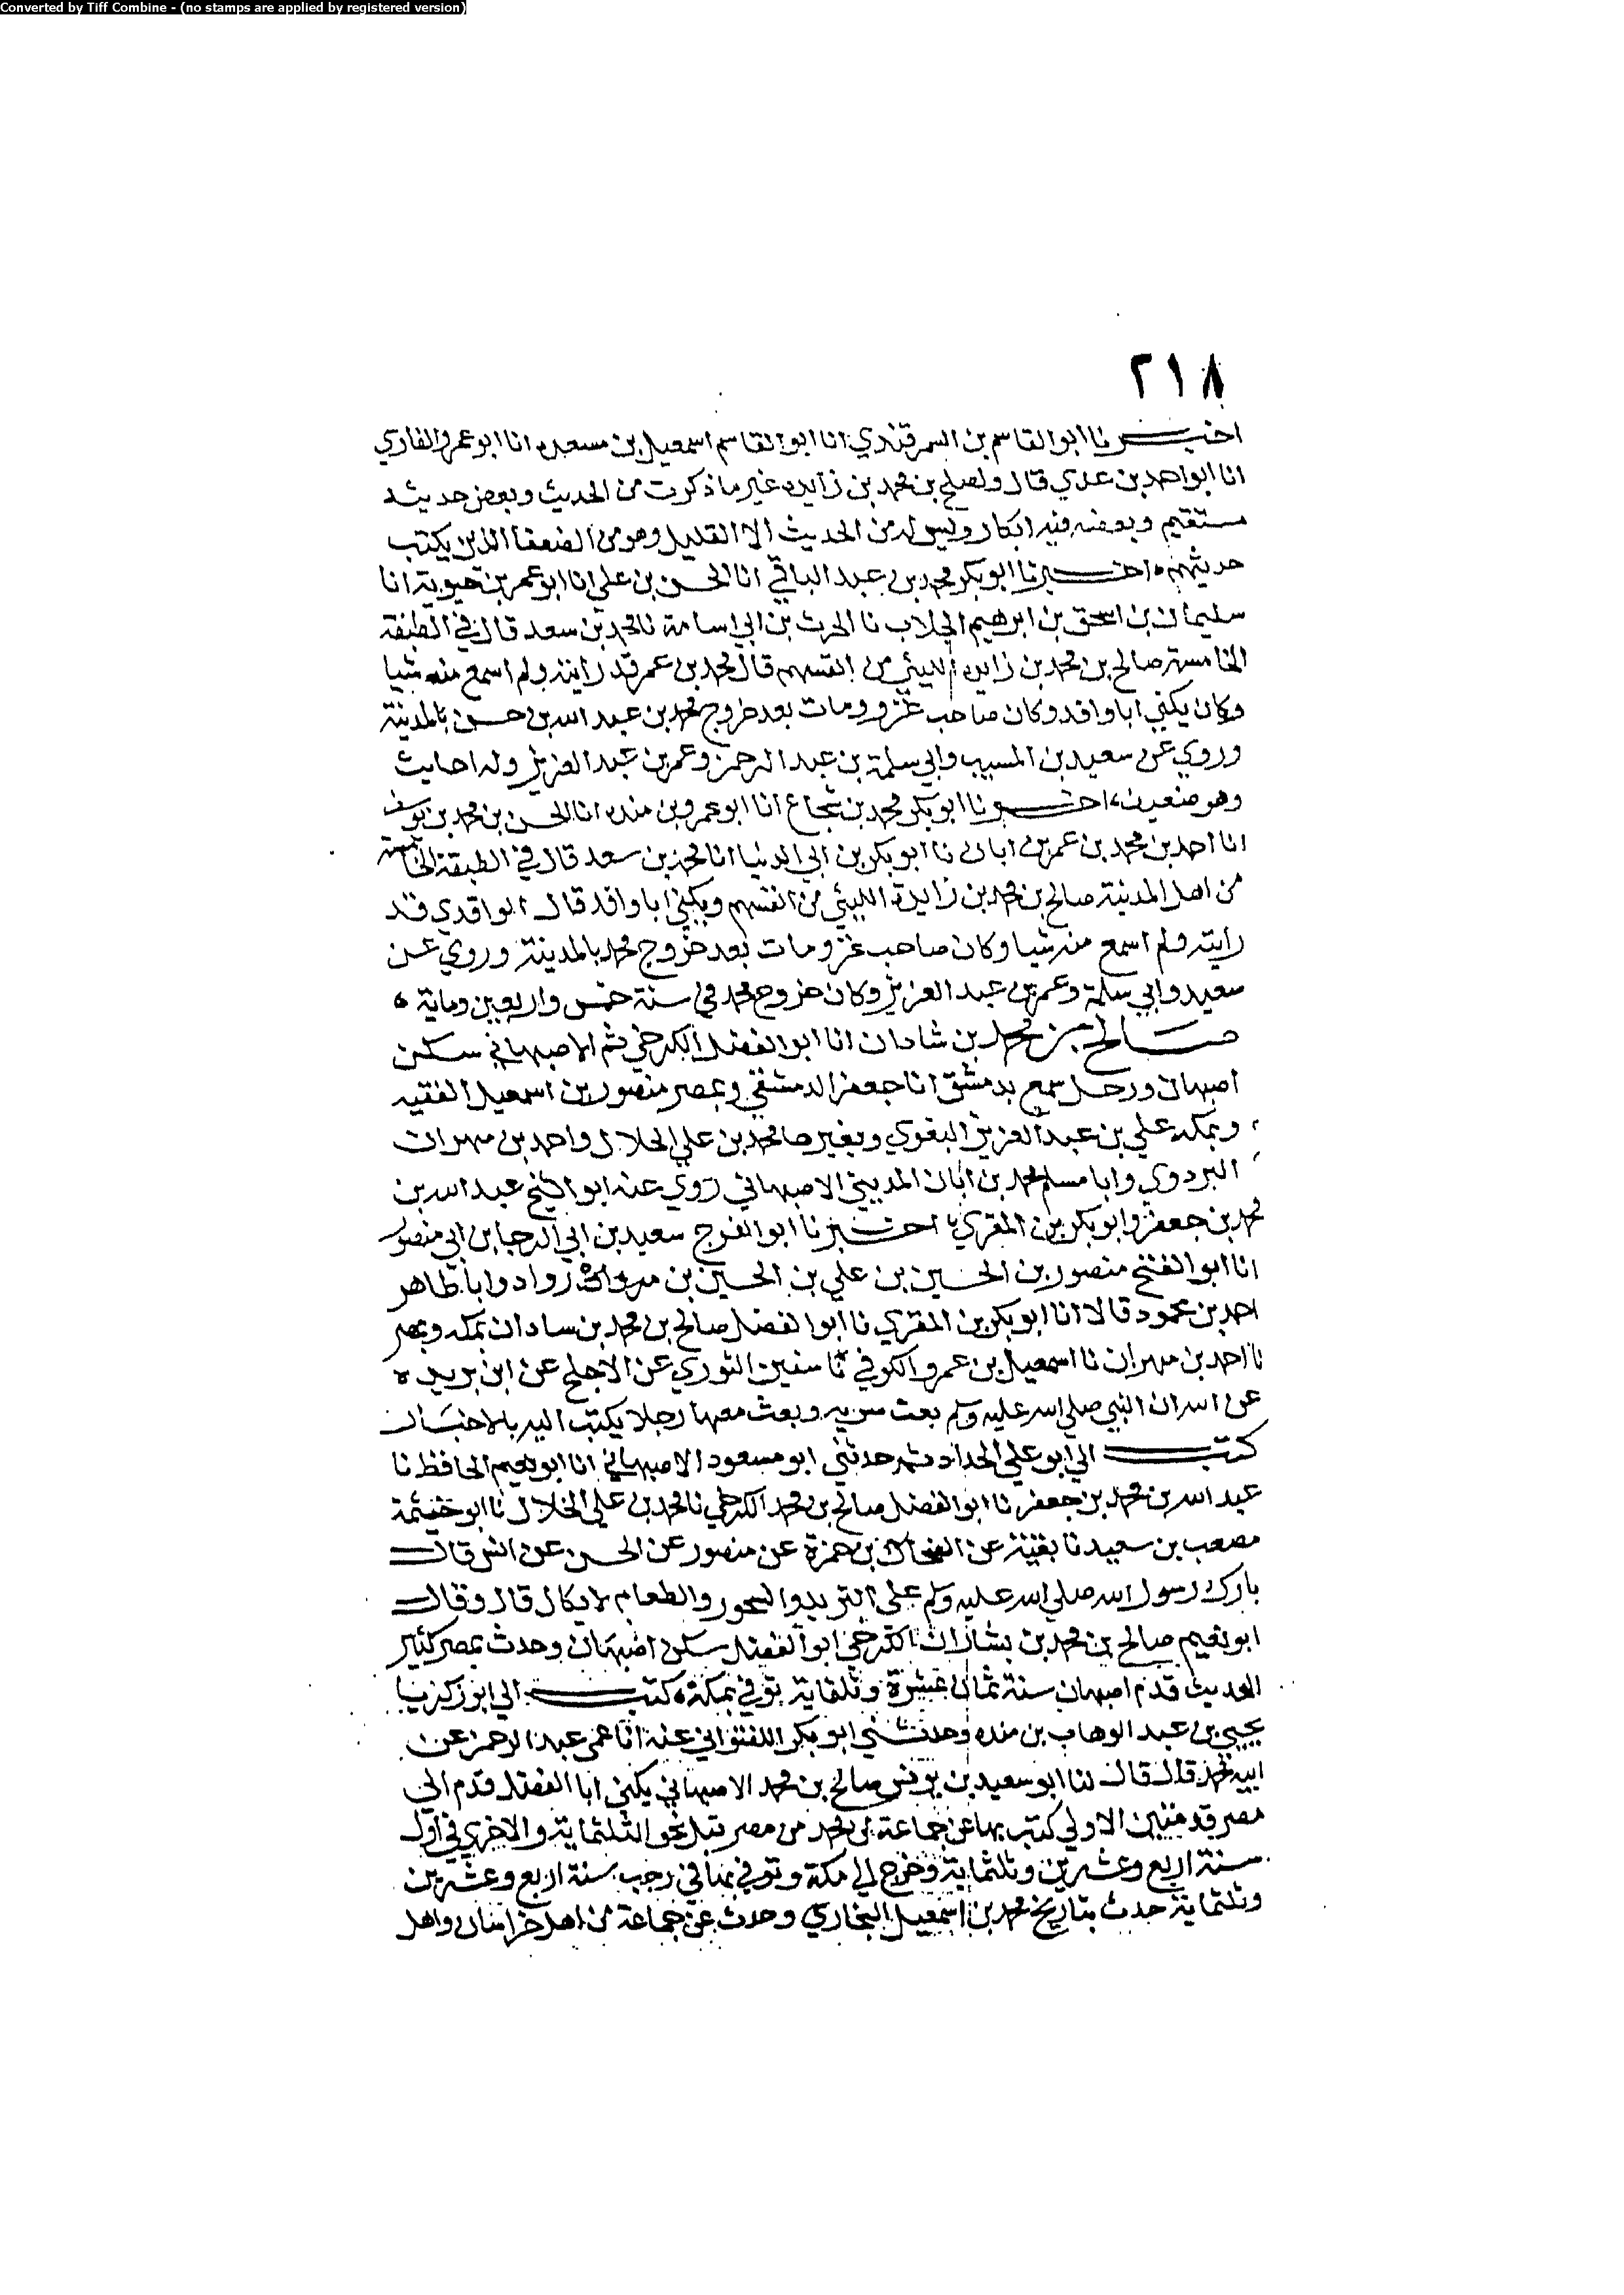 Converted by Tiff Combine - (no stamps are applied by registered version)
٢١٨
اخبرنا ابو القاسم بن السمرقندي انا ابو القاسم اسمعيل بن مسعده انا ابو عمرو الفارسي
انا ابو احمد بن عدي قال ولصلح بن محمد بن زايده غير ما ذكرت من الحديث وبعض حديثه
مستقيم وبعضه فيه انكار وليس له من الحديث الا القليل وهو من الضعفا الذين يكتب
حديثهم اخبرنا ابو بكر محمد بن عبد الباقي انا الحسن بن علي انا ابو عمر بن حيوية انا
سليمان بن اسحق بن ابرهيم الجلاب نا الحرث بن ابي اسامة نا محمد بن سعد قال في الطبقة
الخامسة صالح بن محمد بن زايده الليثي من انفسهم قال محمد بن عمر قد رايته ولم اسمع منه شيا
وكان يكنى ابا واقد وكان صاحب غزو ومات بعد خروج محمد بن عبد الله بن حسن بالمدينة
وروي عن سعيد بن المسيب وابي سلمة بن عبد الرحمن وعمر بن عبد العزيز وله احايث
وهو ضعيف اخبرنا ابو بكر محمد بن شجاع انا ابو عمرو بن منده انا الحسن بن محمد بن يوسف
انا احمد بن محمد بن عمر بن ابان نا ابو بكر بن ابي الدنيا انا محمد بن سعد قال في الطبقة الخامسة
من اهل المدينة صالح بن محمد بن زايدة الليثي من انفسهم ويكنى ابا واقد قال الواقدي قد
رايته ولم اسمع منه شيا وكان صاحب غزو مات بعد خروج محمد بالمدينة وروي عن
سعيد وابي سلمة وعمر بن عبد العزيز وكان خروج محمد في سنة خمس واربعين وماية ه
صالح بن محمد بن شادان انا ابو الفضل الكرخي ثم الاصبهاني سكن
اصبهان ورحل سمع بدمشق انا جعفر الدمشقي وبمصر منصور بن اسمعيل الفقيه
وبمكه علي بن عبد العزيز البغوي وبغيرها محمد بن علي الخلال واحمد بن مهران
البردوي وابا مسلم محمد بن ابان المديني الاصبهاني روي عنه ابو الشيخ عبد الله بن
محمد بن جعفر وابو بكر بن المقري اخبرنا ابو الفرج سعيد بن ابي الرجا بن ابي منصور
انا ابو الفتح منصور بن الحسين بن علي بن الحسين بن رواد وابا طاهر
احمد بن محمود قالا انا ابو بكر بن المقري نا ابو الفضل صالح بن محمد بن سادان بمكه وبمصر
نا احمد بن مهران نا اسمعيل بن عمرو الكوفي نا سفين الثوري عن الاجلح عن ابن بريده
عن ان النبي صلي الله عليه وسلم بعث سريه وبعث معها رجلا يكتب اليه بالاخبار
كتب الي ابو علي الحداد ثم حدثني ابو مسعود الاصبهاني انا ابو نعيم الحافظ نا
عبد الله بن محمد بن جعفر نا ابو الفضل صالح بن محمد الكرخي نا محمد بن علي الخلال نا ابو خيثمة
مصعب بن سعيد نا بقية عن الضحاك بن حمزة عن منصور عن الحسن عن انس قال
بارك رسول الله صلي الله عليه وسلم على الثريد والسحور والطعام لا يكال قال وقال
ابو نعيم صالح بن محمد بن شاران الكرخي ابو الفضل سكن اصبهان وحدث بمصر كثير
الحديث قدم اصبهان سنة ثمان عشرة وثلثماية توفي بمكة كتب الي ابو زكريا
يحيى بن عبد الوهاب بن منده وحدثني ابو بكر اللفتواني عنه انا عمي عبد الرحمن عن
ابيه محمد قال قال لنا ابو سعيد بن يونس صالح بن محمد الاصبهاني يكنى ابا الفضل قدم الي
مصر قدمتين الاولي كتب بها عن جماعة من مصر قبل نحو الثلثماية والاخري في اول
سنة اربع وعشرين وثلثماية وخرج الي مكة وتوفي بمنا في رجب سنة اربع وعشرين
وثلثماية حدث بتاريخ محمد بن اسمعيل البخاري وحدث عن جماعة من اهل خراسان واهل